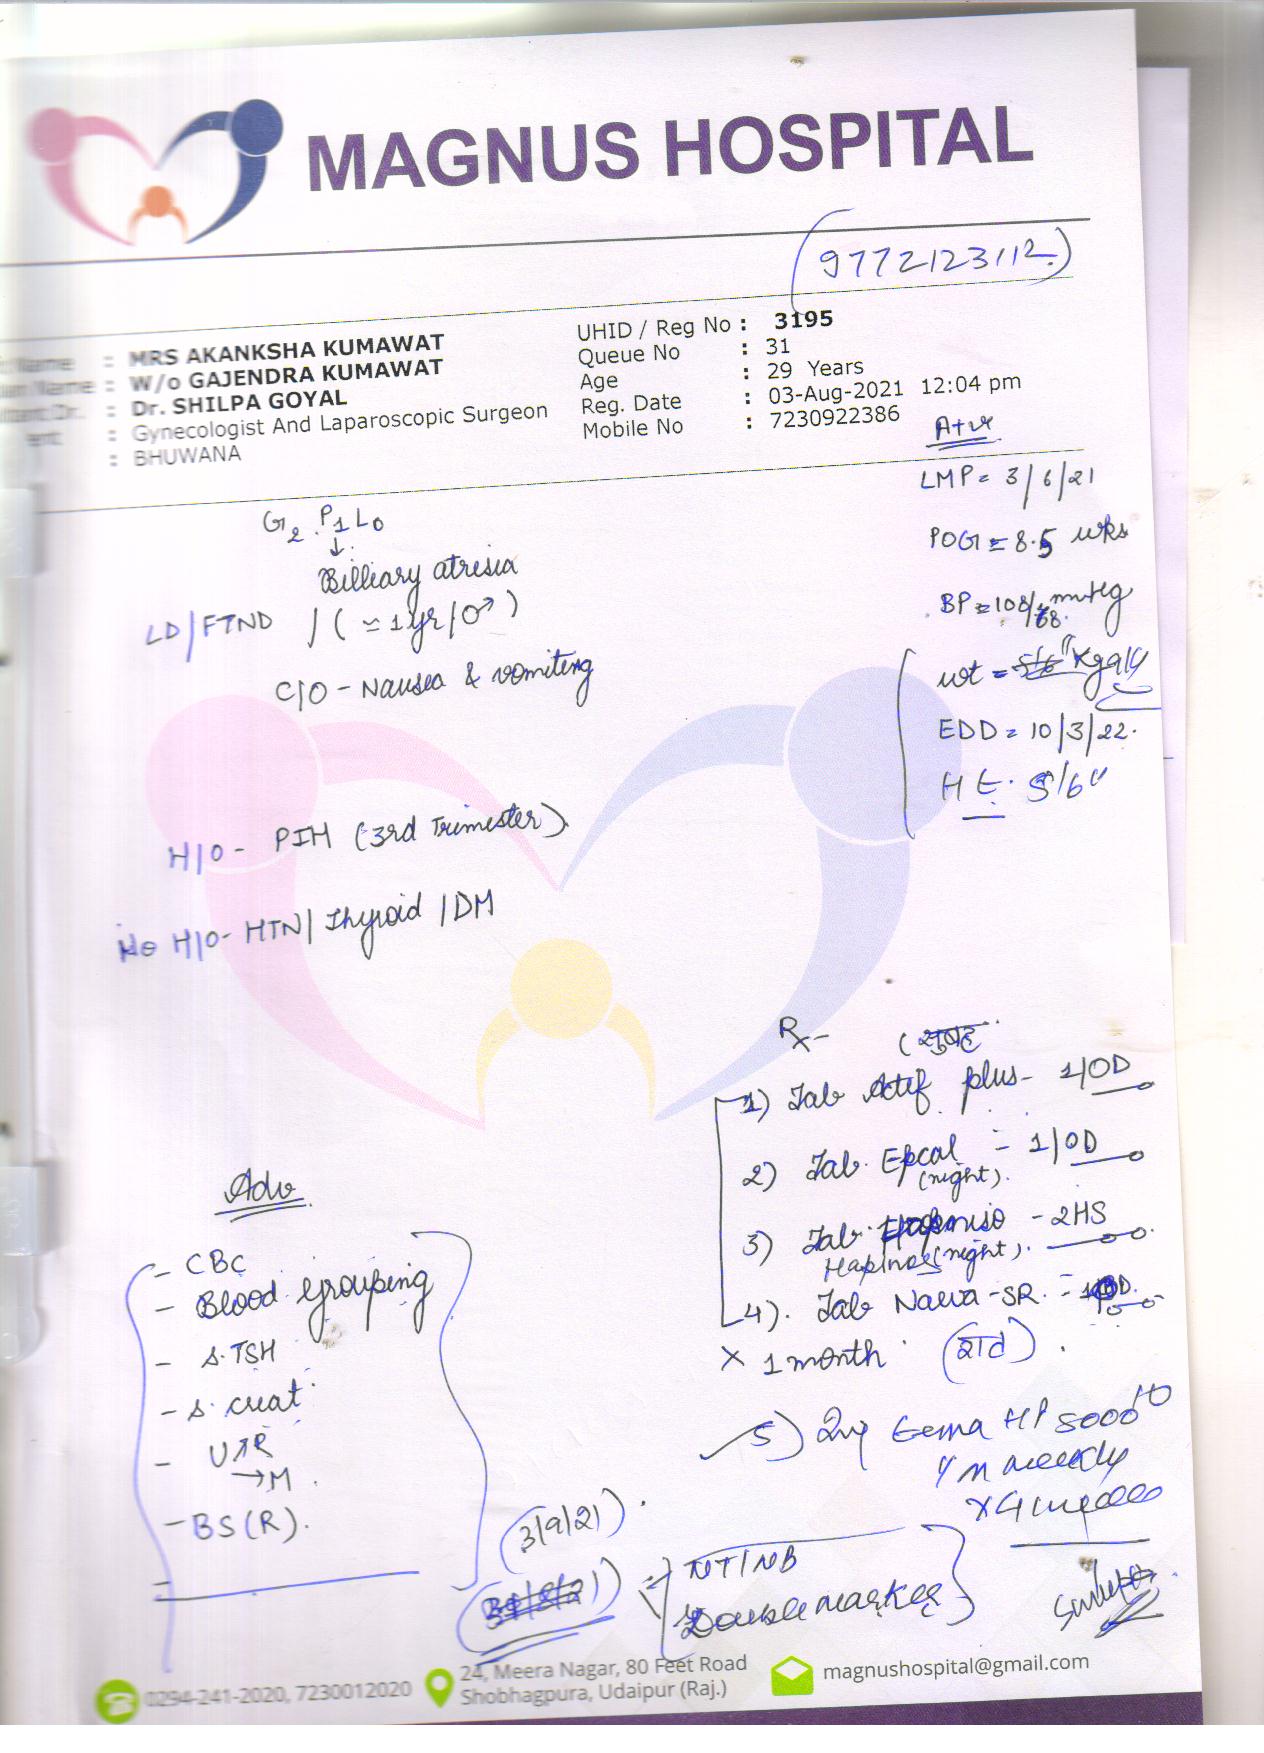 MAGNUS HOSPITAL
(9772123112.)
Name : MRS AKANKSHA KUMAWAT
Name : W/o GAJENDRA KUMAWAT
Dr. : Dr. SHILPA GOYAL
: Gynecologist And Laparoscopic Surgeon
: BHUWANA
UHID / Reg No : 3195
Queue No : 31
Age : 29 Years
Reg. Date : 03-Aug-2021 12:04 pm
Mobile No : 7230922386
A+ve
LMP = 3/6/21
POG = 8.5 wks
BP = 108/68 mmHg
wt = Kg
EDD = 10/3/22.
Ht. 5/6"
G2 P1 L0
↓
Billiary atresia
LD/FTND / ( ≃ 1yr/♂ )
C/O - Nausea & vomiting
H/O - PIH (3rd Trimester)
No H/O - HTN/ Thyroid /DM
Rx - (सुबह
1) Tab Actif plus - 1/OD
2) Tab. Epcal - 1/OD
(night).
3) Tab. - 2HS
(night).
4). Tab Nawa-SR. =
× 1 month.
5) Inj Gema HP 5000 IU
weekly
Adv
- CBC
- Blood grouping
- S.TSH
- S. creat
- U R
→ M.
- BS (R).
(3/9/21)
NT/NB
Double marker
0294-241-2020, 7230012020
24, Meera Nagar, 80 Feet Road
Shobhagpura, Udaipur (Raj.)
magnushospital@gmail.com